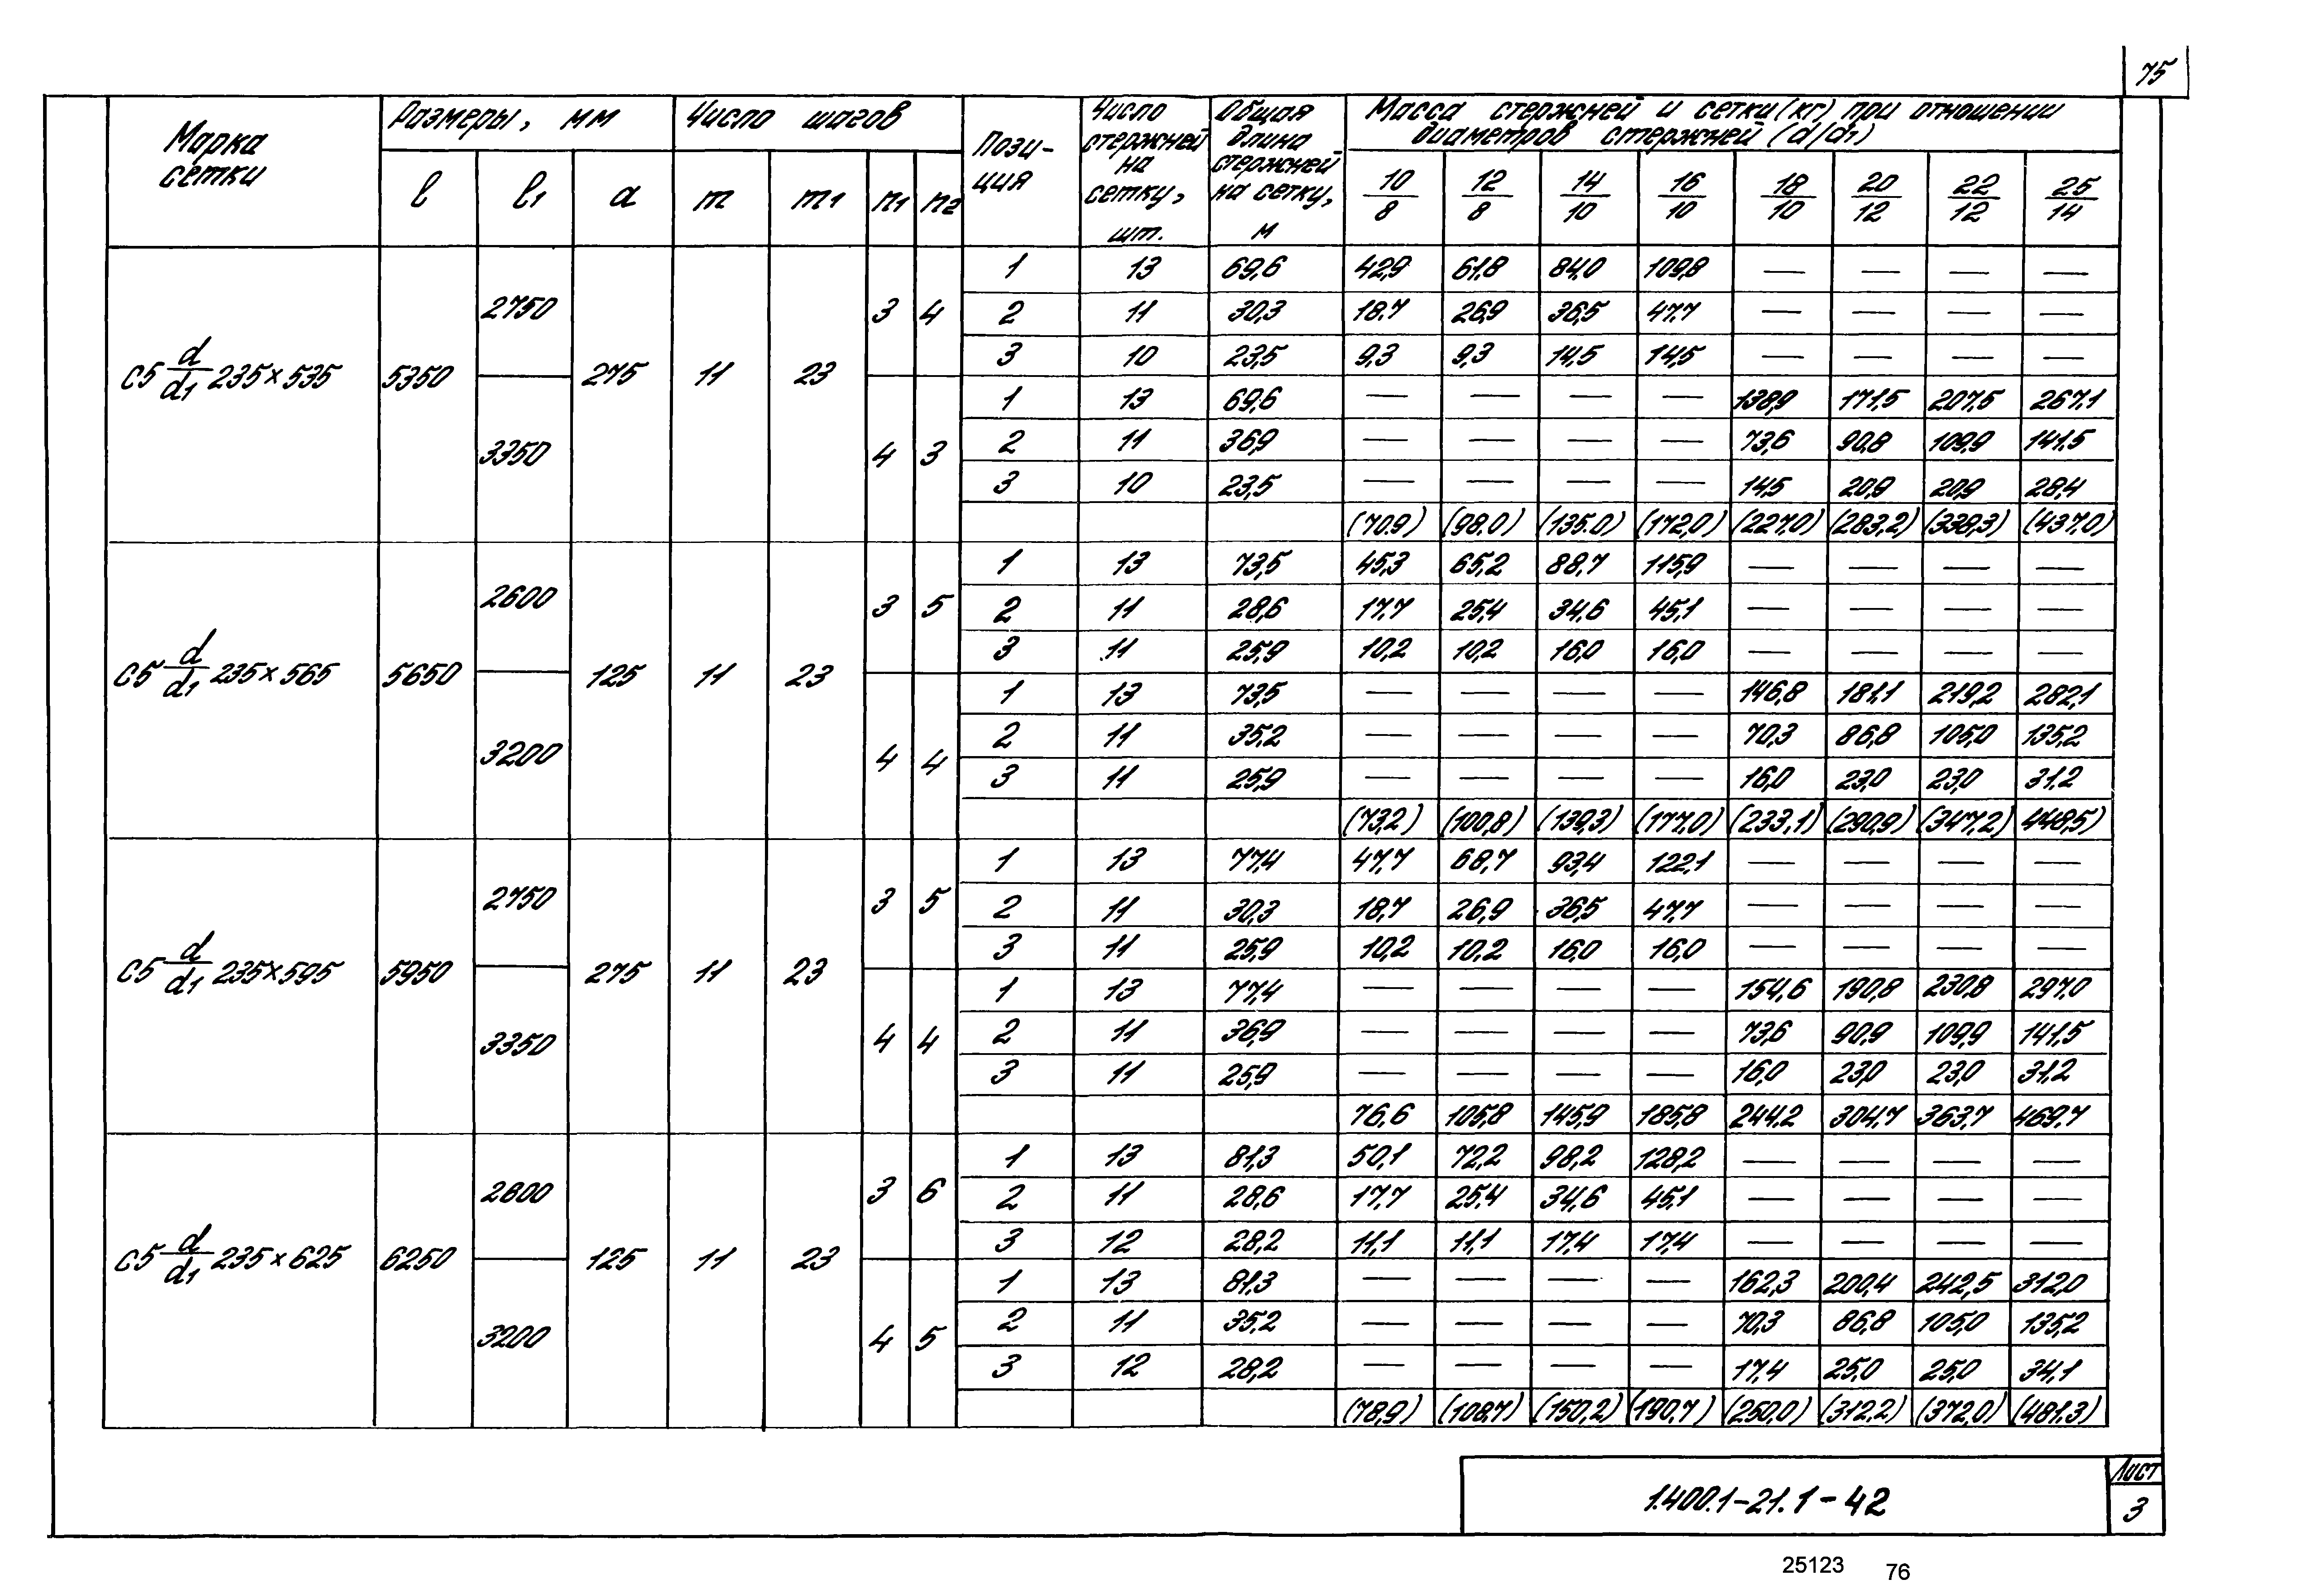 75
Марка сетки | Размеры, мм | Число шагов | Пози-ция | Число стержней на сетку, шт. | Общая длина стержней на сетку, м | Масса стержней и сетки (кг) при отношении диаметров стержней (d/d1)
l | l1 | a | m | m1 | n1 | n2 | 10/8 | 12/8 | 14/10 | 16/10 | 18/10 | 20/12 | 22/12 | 25/14
С5 d/d1 235×535 | 5350 | 2750 | 275 | 11 | 23 | 3 | 4 | 1 | 13 | 69,6 | 42,9 | 61,8 | 84,0 | 109,8 | — | — | — | —
2 | 11 | 30,3 | 18.7 | 26,9 | 36,5 | 47,7 | — | — | — | —
3 | 10 | 23,5 | 9,3 | 9,3 | 14,5 | 14,5 | — | — | — | —
3350 | 4 | 3 | 1 | 13 | 69,6 | — | — | — | — | 138,9 | 171,5 | 207,5 | 267,1
2 | 11 | 36,9 | — | — | — | — | 73,6 | 90,8 | 109,9 | 141,5
3 | 10 | 23,5 | — | — | — | — | 14,5 | 20,9 | 20,9 | 28,4
(70.9) | (98.0) | (135.0) | (172,0) | (227,0) | (283,2) | (338,3) | (437,0)
С5 d/d1 235×565 | 5650 | 2600 | 125 | 11 | 23 | 3 | 5 | 1 | 13 | 73,5 | 45,3 | 65,2 | 88,7 | 115,9 | — | — | — | —
2 | 11 | 28,6 | 17,7 | 25,4 | 34,6 | 45,1 | — | — | — | —
3 | 11 | 25,9 | 10,2 | 10,2 | 16,0 | 16,0 | — | — | — | —
3200 | 4 | 4 | 1 | 13 | 73,5 | — | — | — | — | 146,8 | 181,1 | 219,2 | 282,1
2 | 11 | 35,2 | — | — | — | — | 70,3 | 86,8 | 105,0 | 135,2
3 | 11 | 25,9 | — | — | — | — | 16,0 | 23,0 | 23,0 | 31,2
(73,2) | (100,8) | (139,3) | (177,0) | (233,1) | (290,9) | (347,2) | 448,5)
С5 d/d1 235×595 | 5950 | 2750 | 275 | 11 | 23 | 3 | 5 | 1 | 13 | 77,4 | 47,7 | 68,7 | 93,4 | 122,1 | — | — | — | —
2 | 11 | 30,3 | 18,7 | 26,9 | 36,5 | 47,7 | — | — | — | —
3 | 11 | 25,9 | 10,2 | 10,2 | 16,0 | 16,0 | — | — | — | —
3350 | 4 | 4 | 1 | 13 | 77,4 | — | — | — | — | 154,6 | 190,8 | 230,8 | 297,0
2 | 11 | 36,9 | — | — | — | — | 73,6 | 90,9 | 109,9 | 141,5
3 | 11 | 25,9 | — | — | — | — | 16,0 | 23,0 | 23,0 | 31,2
76,6 | 105,8 | 145,9 | 185,8 | 244,2 | 304,7 | 363,7 | 469,7
С5 d/d1 235×625 | 6250 | 2600 | 125 | 11 | 23 | 3 | 6 | 1 | 13 | 81,3 | 50,1 | 72,2 | 98,2 | 128,2 | — | — | — | —
2 | 11 | 28,6 | 17,7 | 25,4 | 34,6 | 45,1 | — | — | — | —
3 | 12 | 28,2 | 11,1 | 11,1 | 17,4 | 17,4 | — | — | — | —
3200 | 4 | 5 | 1 | 13 | 81,3 | — | — | — | — | 162,3 | 200,4 | 242,5 | 312,0
2 | 11 | 35,2 | — | — | — | — | 70,3 | 86,8 | 105,0 | 135,2
3 | 12 | 28,2 | — | — | — | — | 17,4 | 25,0 | 25,0 | 34,1
(78,9) | (108,7) | (150,2) | (190,7) | (250,0) | (312,2) | (372,0) | (481,3)
1.400.1-21.1-42
Лист
3
25123 76